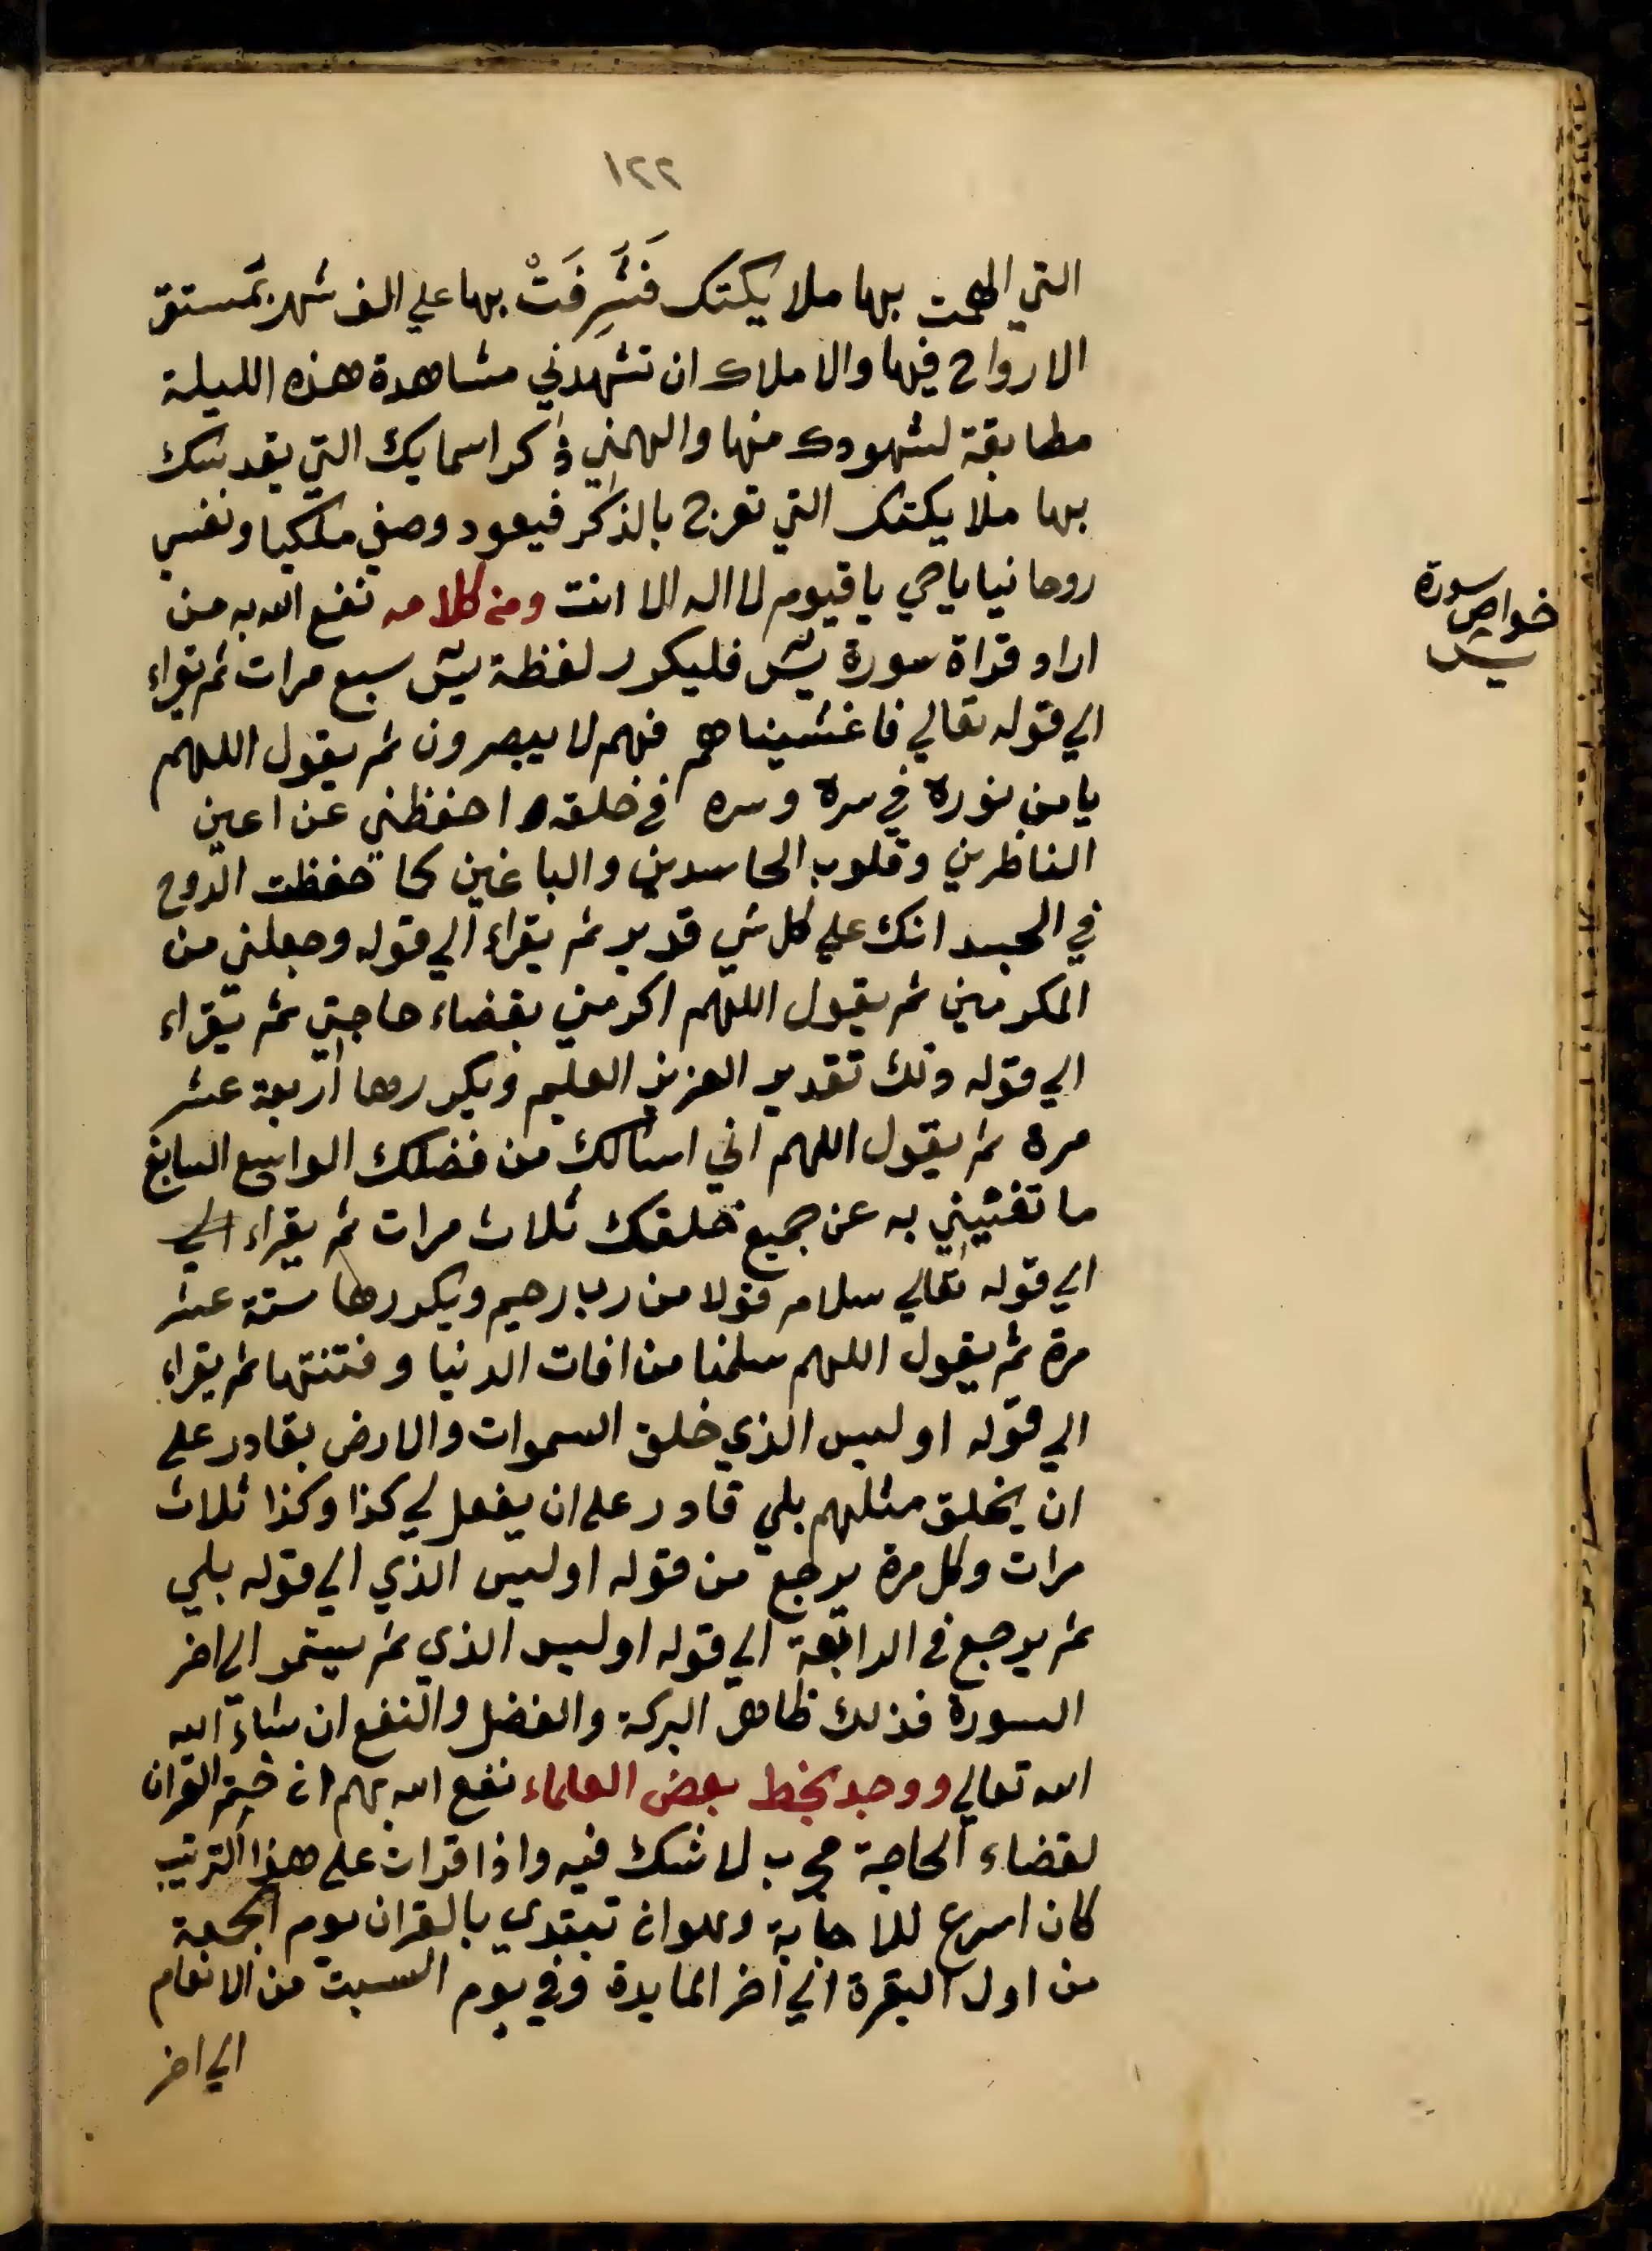 ١٢٢
التي الهمت بها ملايكتك فَشَرِفَتْ بها علي الف شهر بمستقر
الارواح فيها والاملاك ان تشهدني مشاهدة هذه الليلة
مطابقة لشهودك منها والهمني ذكر اسمايك التي يقدسك
بها ملايكتك التي تعرج بالذكر فيعود وصفي ملكيا ونفسي
روحانيا يا حي يا قيوم لا اله الا انت ومن كلامه نفع الله به من
اراد قراة سورة يس فليكرر لفظة يس سبع مرات ثم يقراء
الي قوله تعالي فاغشيناهم فهم لا يبصرون ثم يقول اللهم
يا من نوره في سره وسره في خلقه احفظني عن اعين
الناظرين وقلوب الحاسدين والباغين كما حفظت الروح
في الجسد انك علي كل شي قدير ثم يقراء الي قوله وجعلني من
المكرمين ثم يقول اللهم اكرمني بقضاء حاجتي ثم يقراء
الي قوله ذلك تقدير العزيز العليم ويكررها اربعة عشر
مرة ثم يقول اللهم اني اسالك من فضلك الواسع السابغ
ما تغنيني به عن جميع خلقك ثلاث مرات ثم يقراء الي
الي قوله تعالي سلام قولا من رب رحيم ويكررها ستة عشر
مرة ثم يقول اللهم سلمنا من افات الدنيا وفتنتها ثم يقراء
الي قوله اوليس الذي خلق السموات والارض بقادر على
ان يخلق مثلهم بلي قادر على ان يفعل لي كذا وكذا ثلاث
مرات وكل مرة يرجع من قوله اوليس الذي الي قوله بلي
ثم يرجع في الرابعة الي قوله اوليس الذي ثم يستمر الي اخر
السورة فذلك ظاهر البركة والفضل والنفع ان شاء الله
الله تعالي ووجد بخط بعض العلماء نفع الله بهم ان ختم القران
لقضاء الحاجة مجرب لا شك فيه واذا قرات على هذا الترتيب
كان اسرع للاجابة وهو ان تبتدي بالقران يوم الجمعة
من اول البقرة الي اخر المايدة وفي يوم السبت من الانعام
الي اخر
خواص سورة
يس